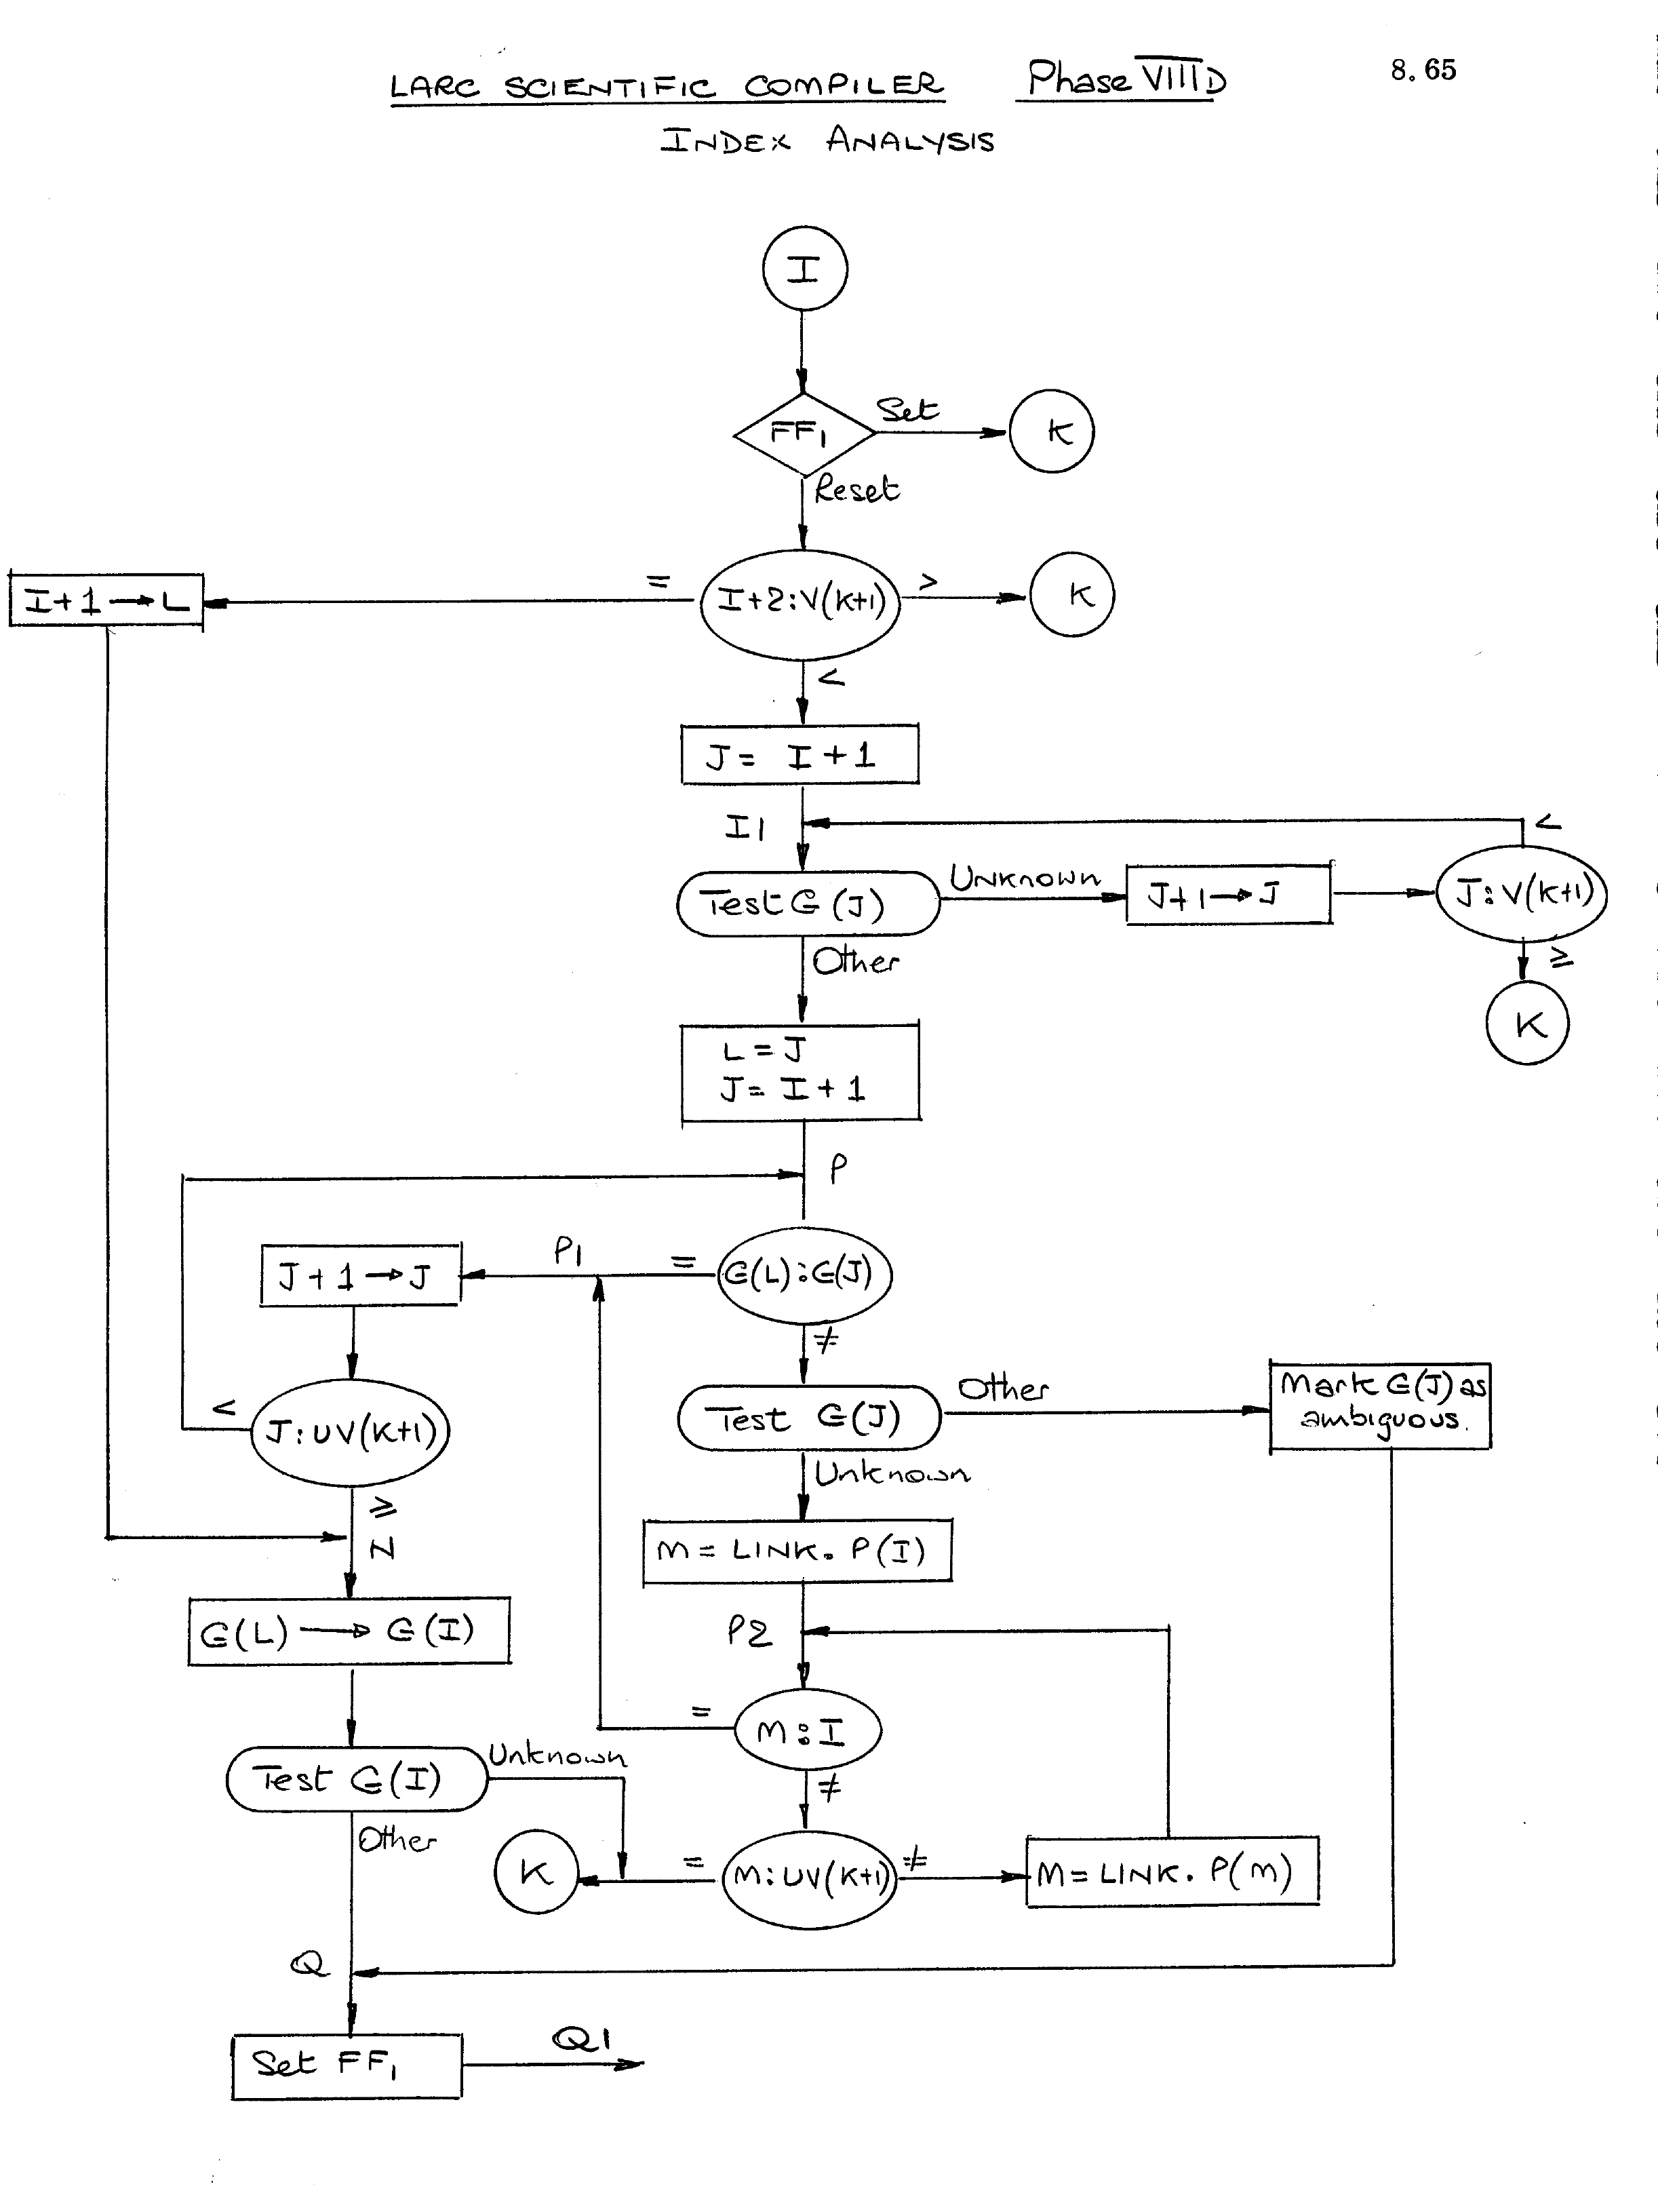 LARC SCIENTIFIC COMPILER Phase VIII D 8.65
INDEX ANALYSIS
I
FF1 Set K
Reset
I+1 → L = I+2:V(K+1) > K
<
J = I + 1
I1 <
Test G(J) Unknown J+1 → J J:V(K+1)
Other ≥
K
L = J
J = I + 1
P
J + 1 → J P1 = G(L):G(J)
≠
Test G(J) Other Mark G(J) as
ambiguous.
< J:UV(K+1)
Unknown
≥
N
M = LINK. P(I)
G(L) → G(I)
P2
= M:I
Test G(I) Unknown
≠
Other
K = M:UV(K+1) ≠ M = LINK. P(M)
Q
Set FF1 Q1